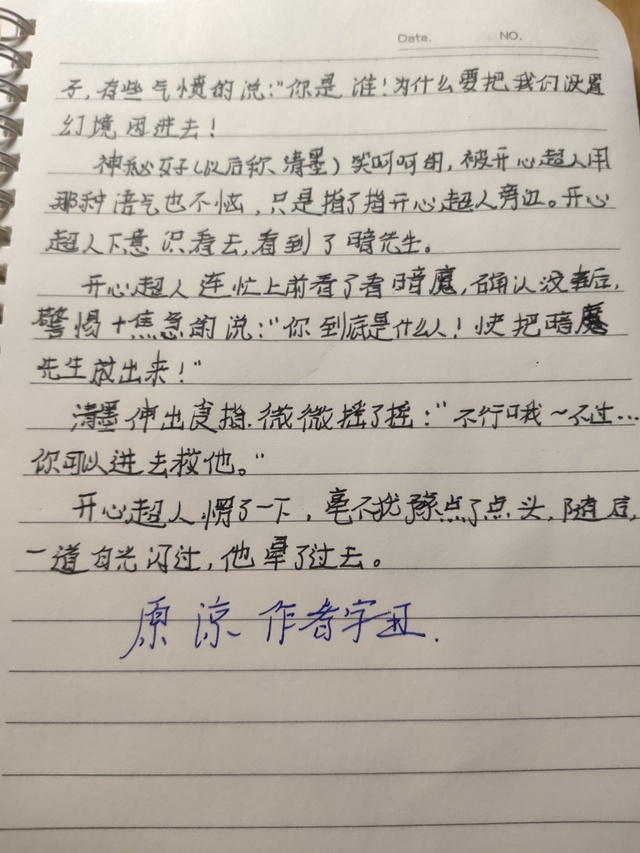 Date. NO.
子,有些气愤的说:"你是谁!为什么要把我们设置
幻境困进去!
神秘女子(以后称清墨)笑呵呵的,被开心超人用
那种语气也不恼,只是指了指开心超人旁边。开心
超人下意识看去,看到了暗先生。
开心超人连忙上前看了看暗魔,确认没事后,
警惕+焦急的说:"你到底是什么人!快把暗魔
先生放出来!"
清墨伸出食指.微微摇了摇:"不行哦~不过…
你可以进去救他。"
开心超人愣了一下,毫不犹豫点了点头,随后,
一道白光闪过,他晕了过去。
原谅作者字丑.